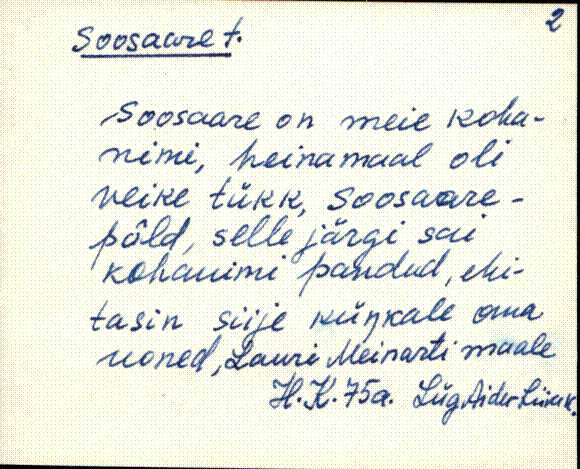 2
Soosaare t.
Soosaare on meie koha-
nimi, heinamaal oli
veike tükk, Soosaare-
põld, selle järgi sai
kohanimi pandud, ehi-
tasin siije künkale oma
uoned, Lauri Meinarti maale
H.K. 75a. Lüg Aidu-Liiva k.